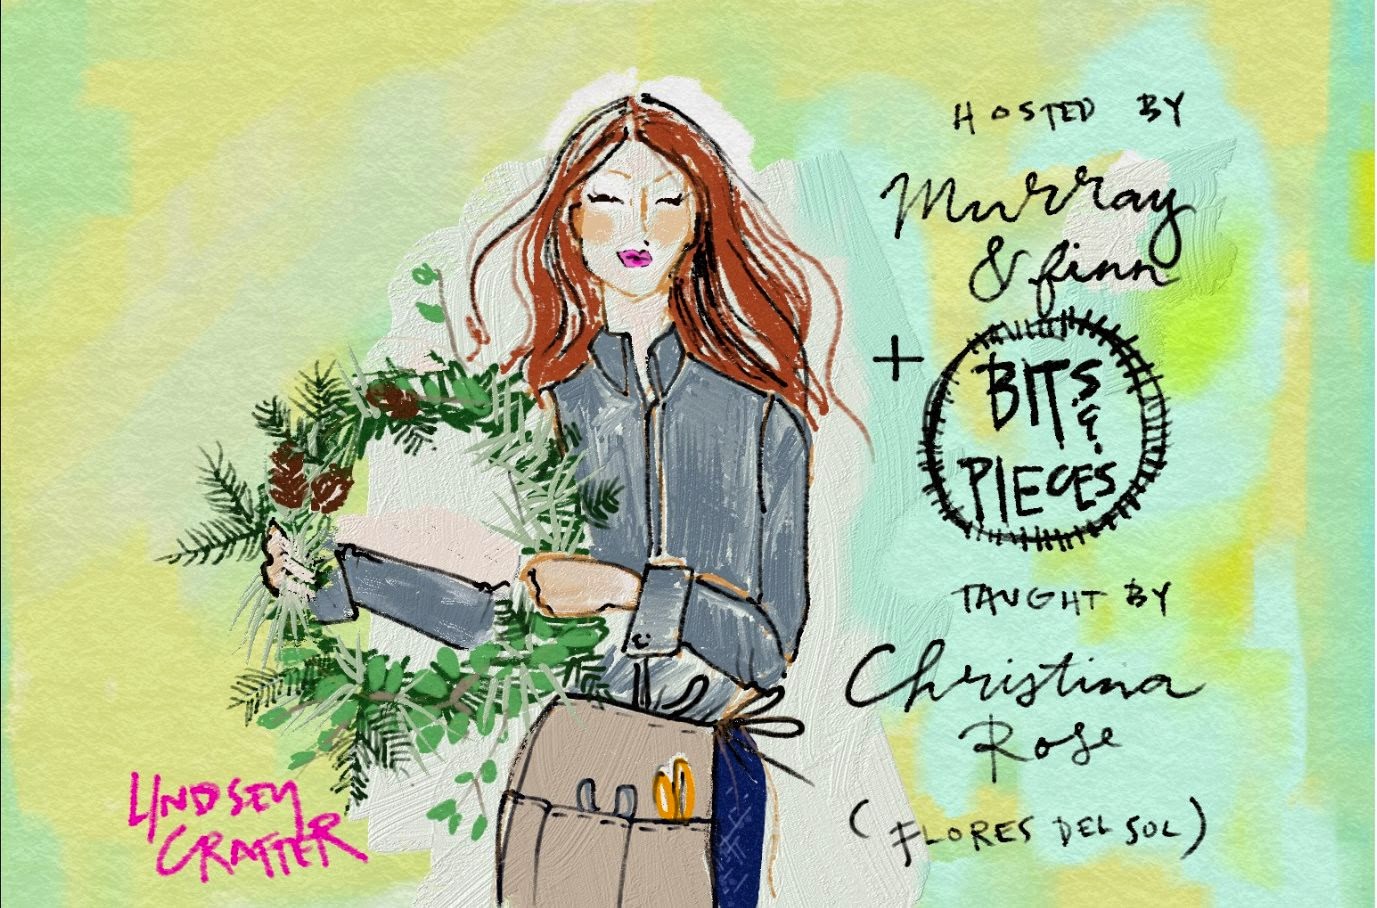 HOSTED BY
Murray
& finn
+
BITS
&
PIECES
TAUGHT BY
Christina
Rose
(FLORES DEL SOL)
LINDSEY
GRATTER